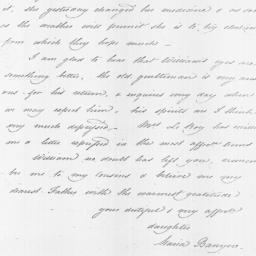 it, she yesterday changed her medicine & as soon
as the mother will permit she is to try
from which they hope much —
I am glad to hear that William's eyes are
something better, the old gentleman is very anxi
ous for his return, & inquires every day when
we may expect him, his spirits are I think
very much depressed — Mrs Le Roy has written
me a letter expressed in the most affect terms
William no doubt has left you, remem
ber me to my cousins & believe me my
dearest Father with the warmest gratitude
your dutiful & very affect
daughter
Maria Banyer